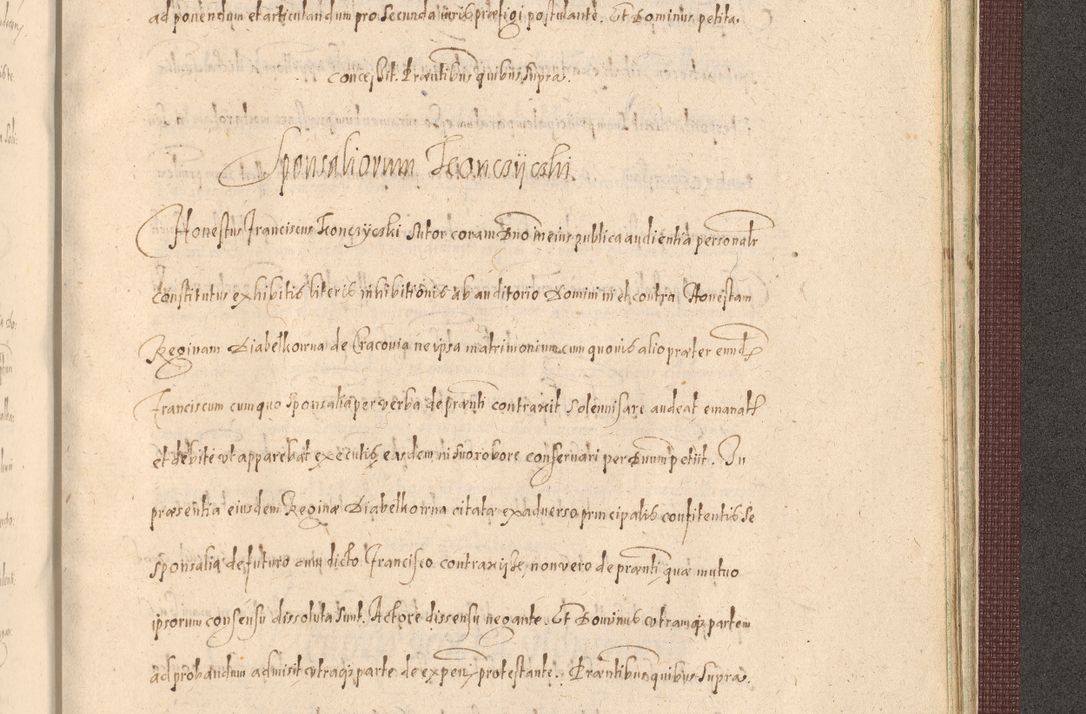 ad ponendum et articulandum pro secunda iuris præfigi postulante. Et Dominus petita.
concessit. Præntibus quibus supra.
Sponsaliorum Konczyczki.
Honestus Franciscus Konczyczki sutor coram Dno in eius publica audientia personalr
constitutus exhibitis literis inhibitionis ab auditorio Domini in et contra Honestam
Reginam Diabelkowna de Cracovia ne ipsa matrimonium cum quovis alio præter eund
Franciscum cum quo sponsalia per verba de prænti contraxit solennisare audeat emanatt
et debite ut apparebat executis easdem in suo robore conservari per Dnum petiit. In
præsentia eiusdem Reginæ Diabelkowna citatæ ex adverso principalis confitentis se
sponsalia de futuro cum dicto Francisco contraxisse, non vero de prænti quæ mutuo
ipsorum consensu dissoluta sunt. Actore dissensu negante. Et Dominus utramq partem
ad probandum admisit utraq parte de expen protestante. Præntibus quibus supra.